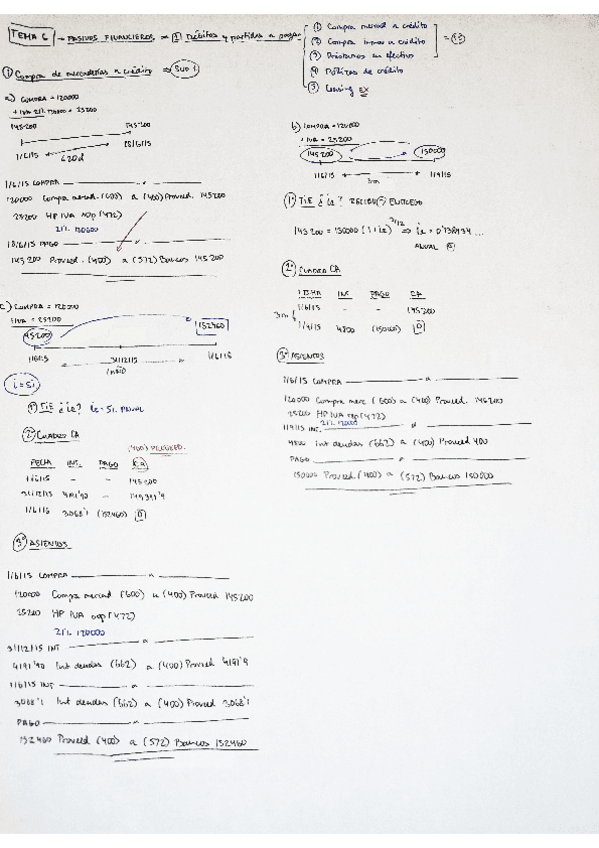 TEMA 6 - PASIVOS FINANCIEROS ⇒ I Débitos y partidas a pagar
① Compra mercad a crédito
② Compra inmov a crédito
③ Préstamos en efectivo
④ Pólizas de crédito
⑤ Leasing EX
① Compra de mercaderías a crédito ⇒ SUP 1
a) COMPRA = 120000
+ IVA 21% 120000 = 25200
145200 145200
1/6/15
1/6/15 COMPRA
120000 Compra mercad. (600) a (400) Proveed. 145200
25200 HP IVA sop (472)
21% 120000
PAGO
145200 Proveed. (400) a (572) Bancos 145200
b) COMPRA = 120000
+ IVA = 25200
145200 150000
1/6/15 3m 1/9/15
1º TIE ¿ie?
145200 = 150000 (1+ie)
ANUAL
2º CUADRO CA
FECHA INT. PAGO CA
1/6/15 - - 145200
3m
1/9/15 4800 (150000) 0
3º ASIENTOS
1/6/15 COMPRA
120000 Compra merc (600) a (400) Proveed. 145200
25200 HP IVA sop (472)
1/9/15 INT.
4800 Int deudas (662) a (400) Proveed
PAGO
150000 Proveed. (400) a (572) Bancos 150000
c) COMPRA = 120000
+ IVA = 25200
145200 152460
1/6/15 31/12/15 1/6/16
1 AÑO
i = 5%
1º TIE ¿ie? ie = 5% ANUAL
2º CUADRO CA
(400) PROVEED.
FECHA INT. PAGO CA
1/6/15 - - 145200
31/12/15 4191'90 - 149391'9
1/6/16 3068'1 (152460) 0
3º ASIENTOS
1/6/15 COMPRA
120000 Compra mercad (600) a (400) Proveed 145200
25200 HP IVA sop (472)
21% 120000
31/12/15 INT
4191'90 Int deudas (662) a (400) Proveed 4191'9
1/6/16 INT
3068'1 Int deudas (662) a (400) Proveed 3068'1
PAGO
152460 Proveed (400) a (572) Bancos 152460